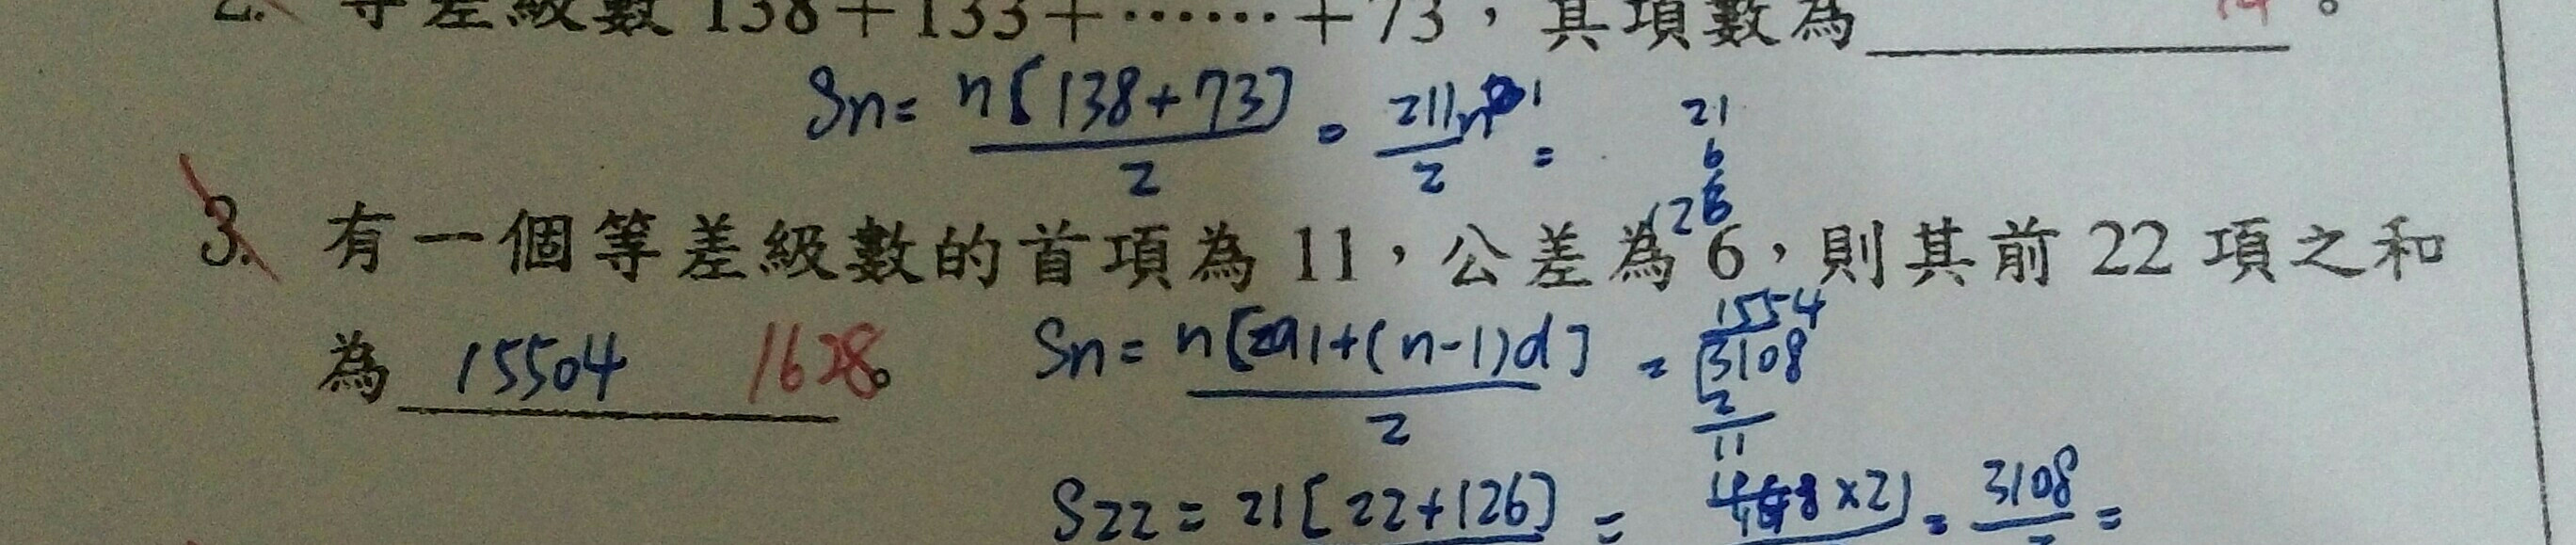 2. 等差級數 138+133+……+73,其項數為 19。
Sn= n[138+73] / 2 = 211n / 2 =
21
6
126
3. 有一個等差級數的首項為 11,公差為 6,則其前 22 項之和
為 15504 1628。
Sn = n[2a1+(n-1)d] / 2 =
1554
3108
2
11
S22 = 21[22+126] = ×21 = 3108 =